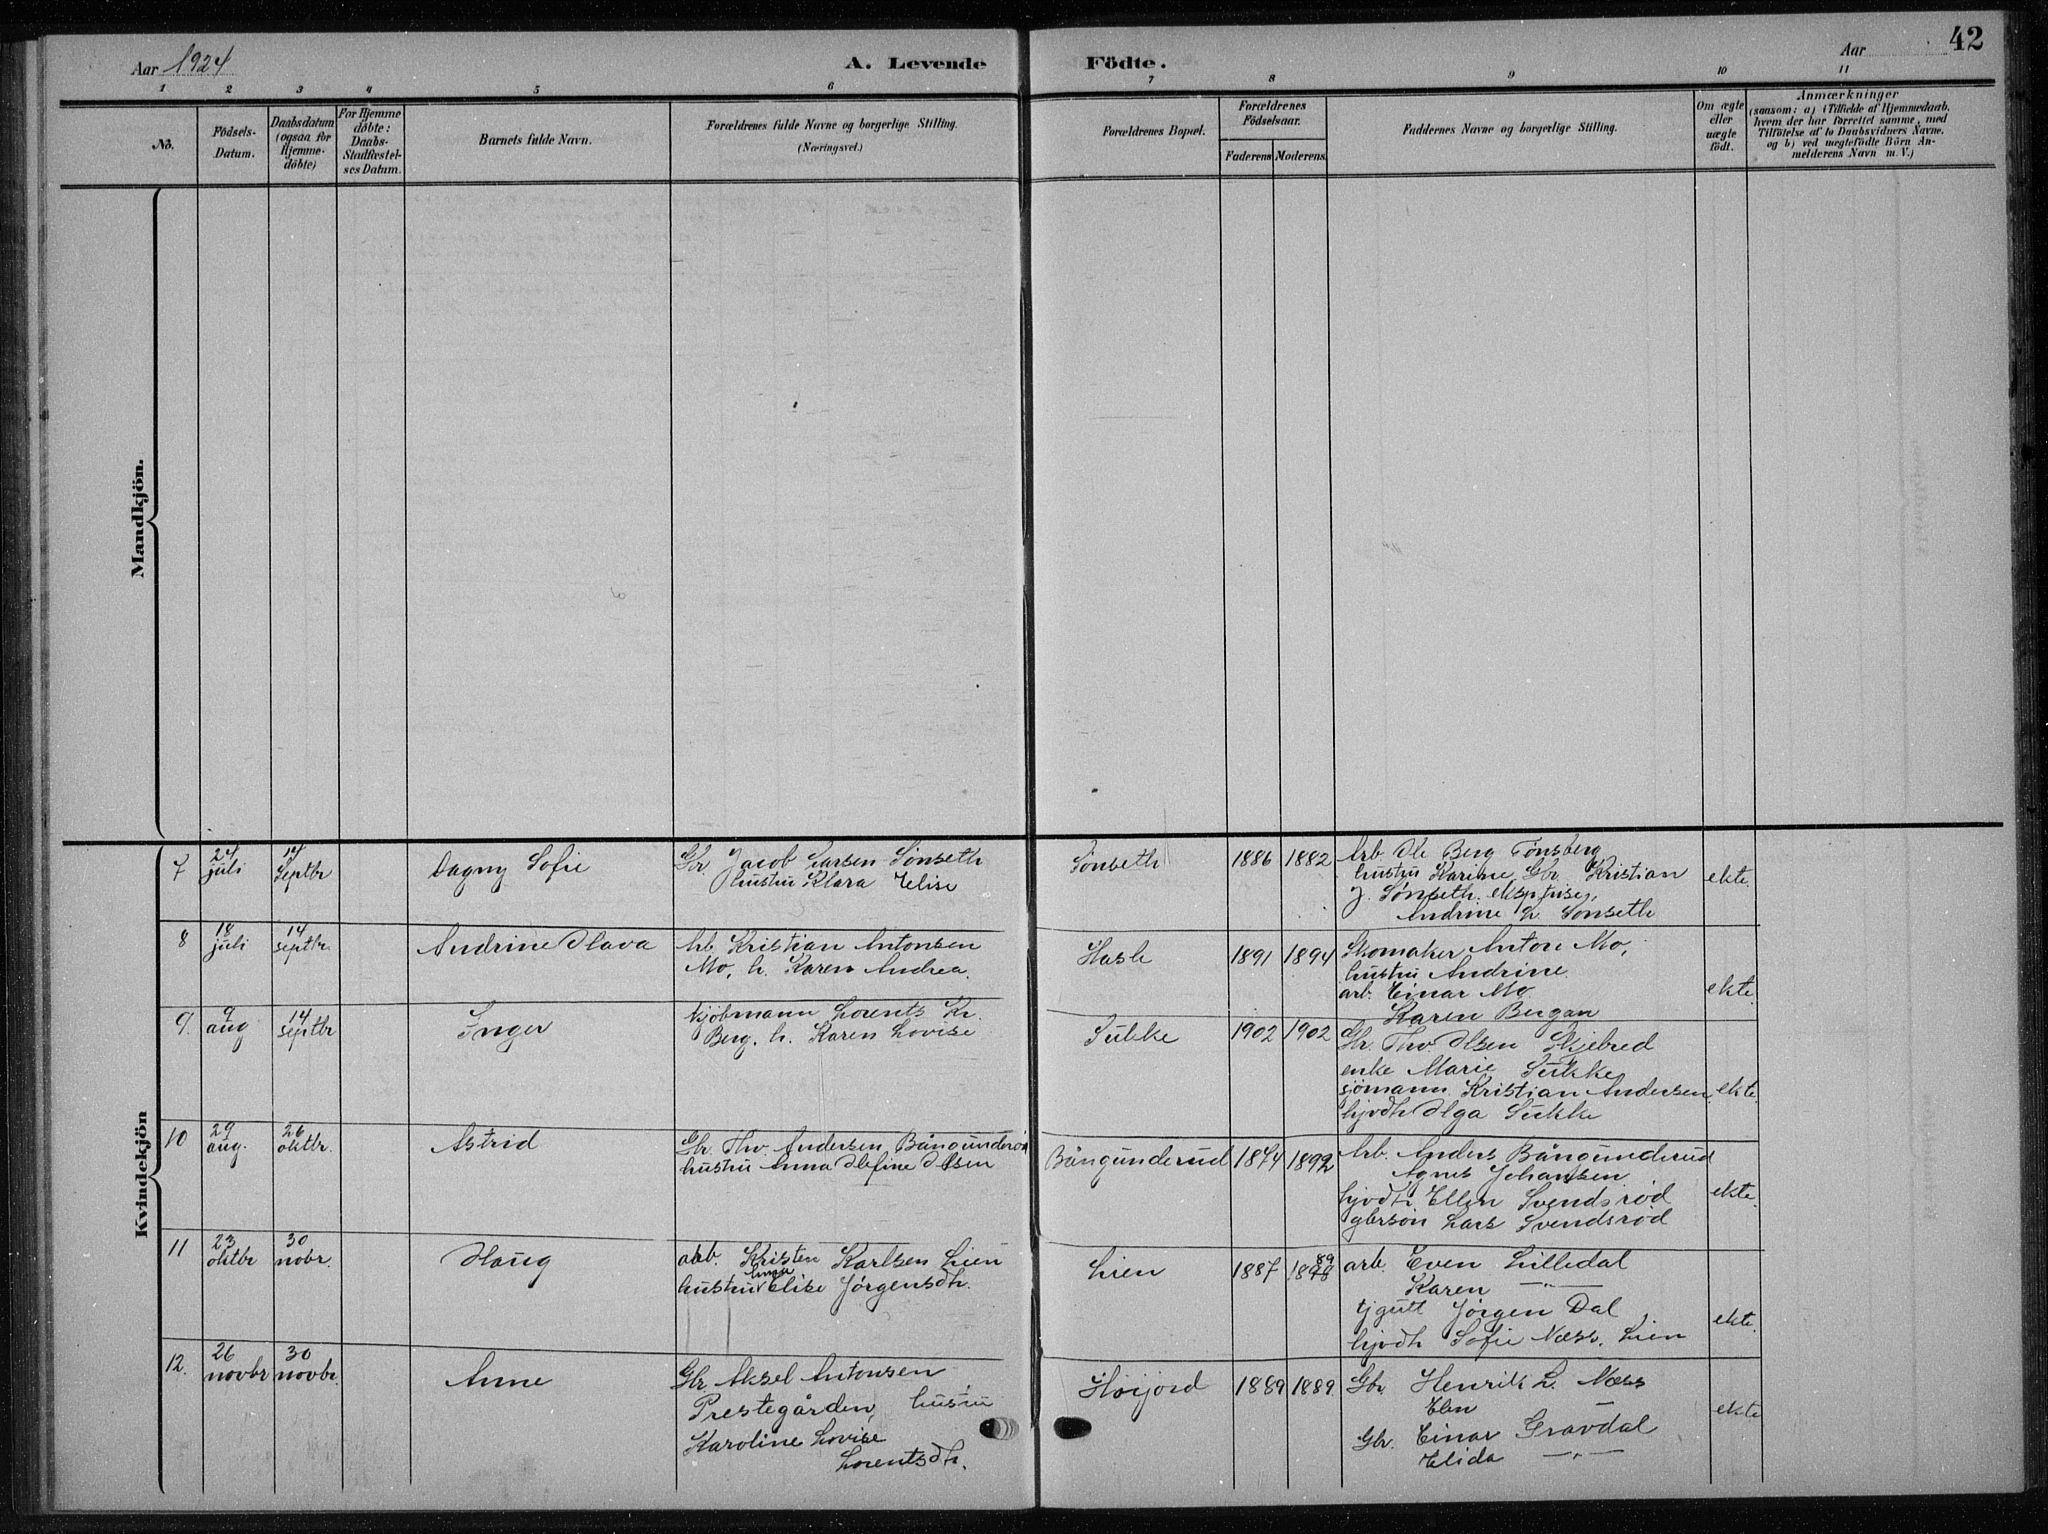 Aar 1924
A. Levende Födte.
Aar
42
1 2 3 4 5 6 7 8 9 10 11
No.
Födsels-
Datum.
Daabsdatum
(ogsaa for
Hjemme-
döbte)
For Hjemme
döbte:
Daabs-
Stadfæstel-
ses Datum.
Barnets fulde Navn.
Forældrenes fulde Navne og borgerlige Stilling.
(Næringsvei.)
Forældrenes Bopæl.
Forældrenes
Födselsaar.
Faderens Moderens.
Faddernes Navne og borgerlige Stilling.
Om ægte
eller
uægte
födt.
Anmærkninger
(saasom: a) i Tilfælde af Hjemmedaab.
hvem der har forrettet samme, med
Tilföielse af to Daabsvidners Navne.
og b) ved uægtefödte Börn An-
melderens Navn m.V.)
Mandkjön.
Kvindekjön
7
24
juli
14
Septbr
Dagny Sofie
Gbr Jacob Larsen Sönseth
hustru Klara Elise
Sönseth
1886 1882
Arb Ole Berg Tønsberg
hustru Karine Gbr Kristian
J. Sønseth. eksp.frise,
Andrine L. Sønseth
ekte.
8
18
juli
14
septbr.
Andrine Olava
Arb Kristian Antonsen
Mo, h. Karen Andrea.
Hasle
1891 1894
Skomaker Anton Mo,
hustru Andrine.
arb. Einar Mo
Karen Bergan
ekte.
9.
9
aug
14
septbr
Inger
kjöbmann Lorents Kr.
Berg. h. Karen Lovise
Sukke
1902 1902
Gbr. Thv Olsen Skjelbred
enke Marie Sukke
sjömann Kristian Andersen
hjvdh Olga Sukke
ekte.
10
29
aug.
26
oktbr.
Astrid
Gbr. Thv. Andersen Bångunderød
hustru Anna Olefine Olsen
Bångunderud
1874 1892
Arb. Anders Bångunderud
Agnes Johansen
hjvdh Ellen Svendsrød
gbrsøn Lars Svendsrød
ekte.
11
23
oktbr
30
nobr.
Haug
arb. Kristen Karlsen Lien
Anna
hustru Elise Jørgensdh.
Lien
1887
89
1878
arb. Even Lilledal
Karen —"—
tjgutt Jørgen Dal
hjvdh Sofie Næss. Lien
ekte.
12.
26
novbr
30
novbr.
Anne
Gbr Aksel Antonsen
Prestegården, hustru
Karoline Lovise
Lorentsdh.
Høijord
1889 1889.
Gbr Henrik L. Næss
Elen —
Gbr. Einar Gravdal
Elida —"—
ekte